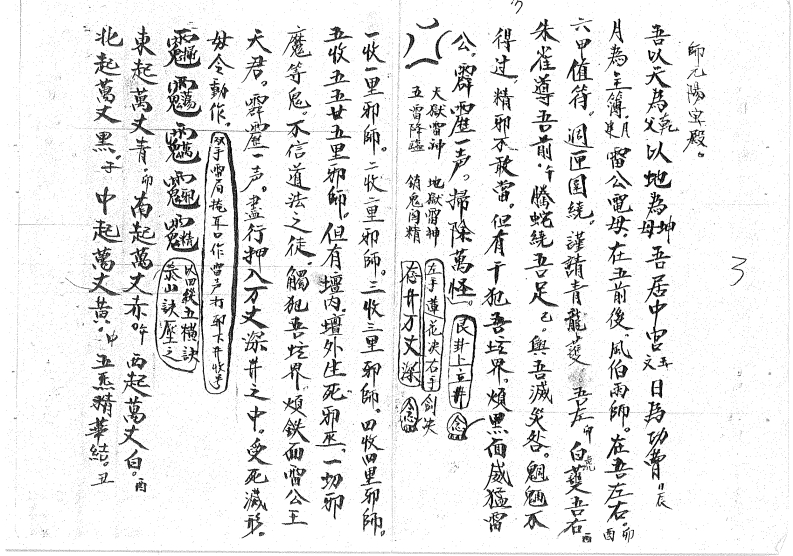 師元陽寶殿。
吾以天為父乾以地為母坤吾居中宮五日為功曹日辰
月為主簿月建雷公電母。在五前後。風伯雨師。在吾左右。卯酉
六甲值符。週匝圍繞。謹請青龍蓬吾左卯白虎蓬吾右酉
朱雀導吾前。午騰蛇繞吾足己。與吾滅災咎。魍魎不
得过。精邪不敢當。但有干犯吾坛界。煩黑面威猛雷
公。霹靂一声。掃除萬怪。艮卦上立井念
天獄雷神 地獄雷神 左手蓮花決右手劍決
五雷降臨 銷鬼國精 忝井万丈深念
一收一里邪師。二收二里邪師。三收三里邪師。四收四里邪師。
五收五五廿五里邪師。但有壇內壇外生死邪巫。一切邪
魔等鬼。不信道法之徒。觸犯吾坛界。煩鉄面雷公王
天君。霹靂一声。盡行押入万丈深井之中。受死滅形。
毋令動作。双手雷局掩耳口作雷声打卯下井收再
以四縱五橫訣
泰山訣壓之
東起萬丈青。卯南起萬丈赤。午西起萬丈白。酉
北起萬丈黑。子中起萬丈黃。中五炁精華結。丑
3